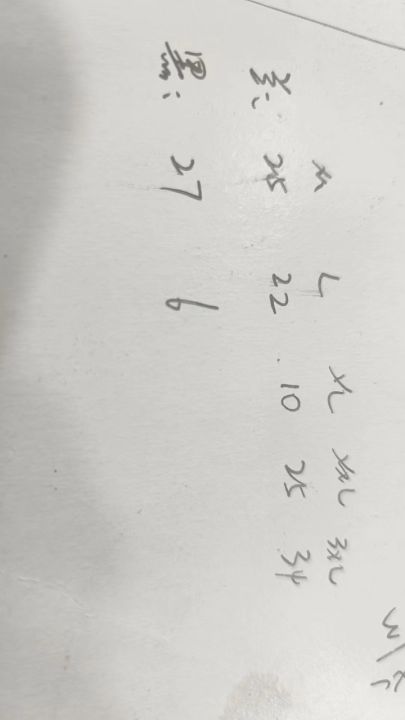 M L XL XXL 3XL
差: 25 22 10 25 34
黑: 27 6